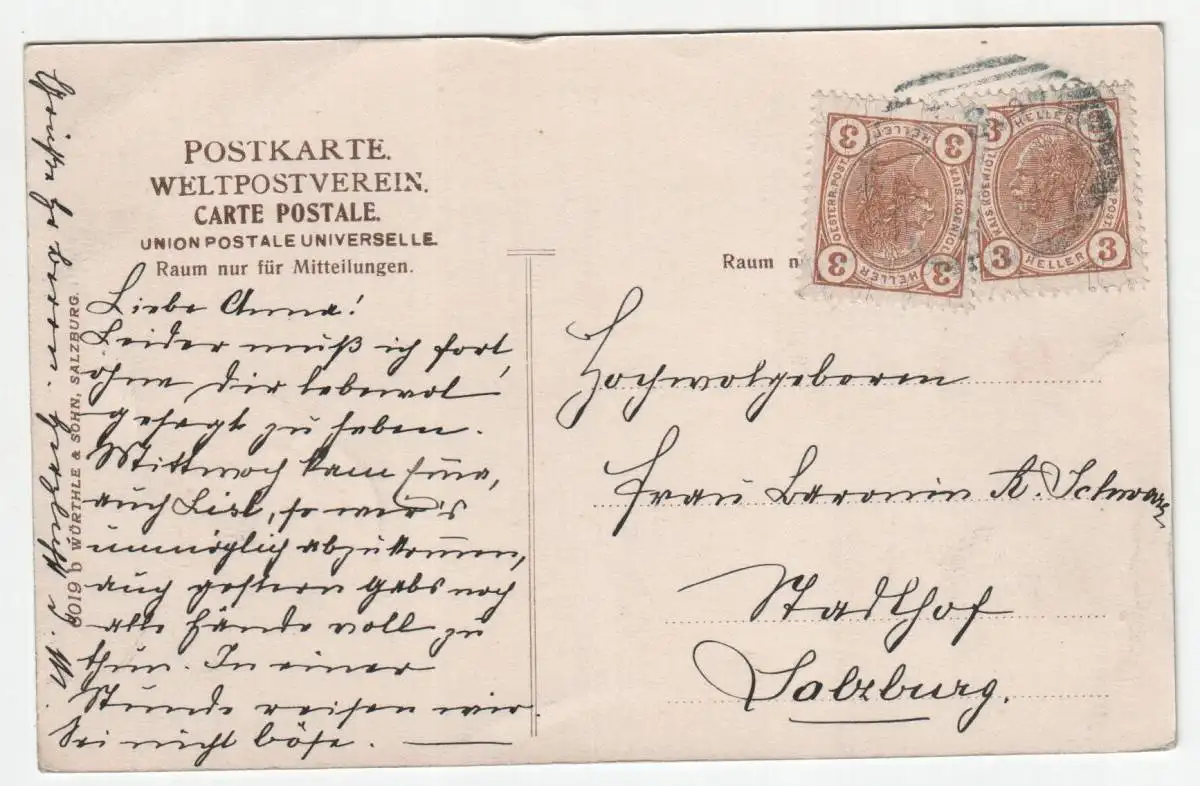 POSTKARTE.
WELTPOSTVEREIN.
CARTE POSTALE.
UNION POSTALE UNIVERSELLE.
Raum nur für Mitteilungen.
Liebe Anna!
Leider muß ich fort,
ohne Dir lebewol
gesagt zu haben.
Mittwoch kam
auch Lisl, so war's
unmöglich abzukommen,
auch gestern gabs noch
alle Hände voll zu
thun. In einer
Stunde reisen wir.
Sei nicht böse.
8019 b WÜRTHLE & SOHN, SALZBURG.
Raum n
3 HELLER 3
OESTERR. POST
KAIS. KOENIGL.
3 HELLER 3
3 HELLER 3
KAIS. KOENIGL.
POST
3 HELLER 3
Hochwolgeboren
Frau Baronin K. Schwarz
Stadlhof
Salzburg.